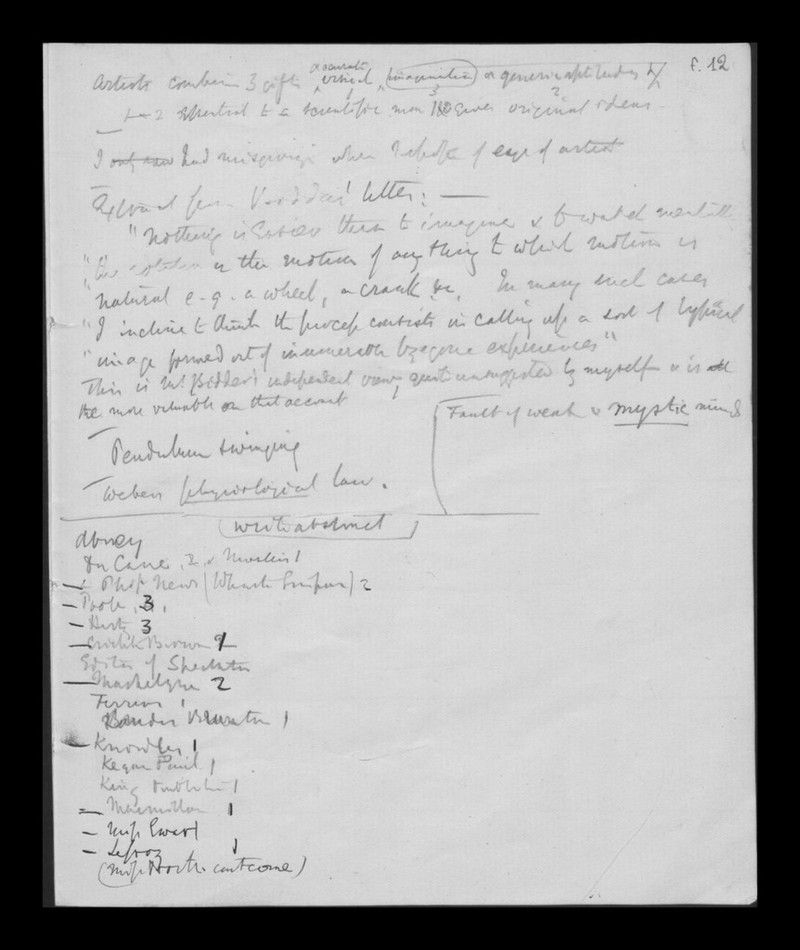 f. 12
Artists combine 3 gifts accurate visual (imagination) or generic aptitudes &
1 3 2
2 essential to a scientific man gives original ideas.
I only saw had misgivings when I spoke of eye of artist
Extract from Kidder's letter: —
"Nothing is easier than to imagine & to watch mentally
"the rotation or the motion of any thing to which motion is
"natural e.g. a wheel, a crank &c. In many such cases
"I incline to think the process consists in calling up a sort of typical
"image formed out of innumerable bygone experiences"
This is Mr Bidder's independent view, quite unsuggested by myself & is all
the more valuable on that account
Fault of weak & mystic minds
Pendulum swinging
Webers physiological law.
(write abstract)
Abney
Du Cane, 2, & 1
— Phot News (Wharton Simpson) 2
— Poole, 3,
— 3
— Crichton Browne 9
Editor of Spectator
— Maskelyne 2
Ferrier 1
1
— Knowles 1
Kegan Paul 1
King 1
— Macmillan 1
— Miss Ewart
— Lefroy 1
(Miss North cant come)